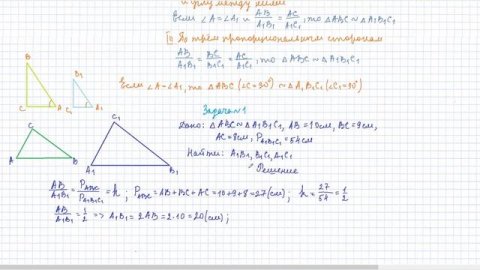 и углу между ними
если ∠A=∠A₁ и AB/A₁B₁ = AC/A₁C₁, то △ABC ~ △A₁B₁C₁
По трём пропорциональным сторонам
AB/A₁B₁ = BC/B₁C₁ = AC/A₁C₁, то △ABC ~ △A₁B₁C₁
Если ∠A=∠A₁, то △ABC (∠C=90°) ~ △A₁B₁C₁ (∠C₁=90°)
B
B₁
C A C₁ A₁
Задача 1
Дано: △ABC ~ △A₁B₁C₁, AB=10см, BC=9см,
AC=8см, P A₁B₁C₁=54см
Найти: A₁B₁, B₁C₁, A₁C₁
Решение
C
C₁
A B A₁ B₁
AB/A₁B₁ = P ABC/P A₁B₁C₁ = k; P ABC = AB+BC+AC = 10+9+8=27(см); k = 27/54 = 1/2
AB/A₁B₁ = 1/2 => A₁B₁ = 2AB = 2·10 = 20(см);